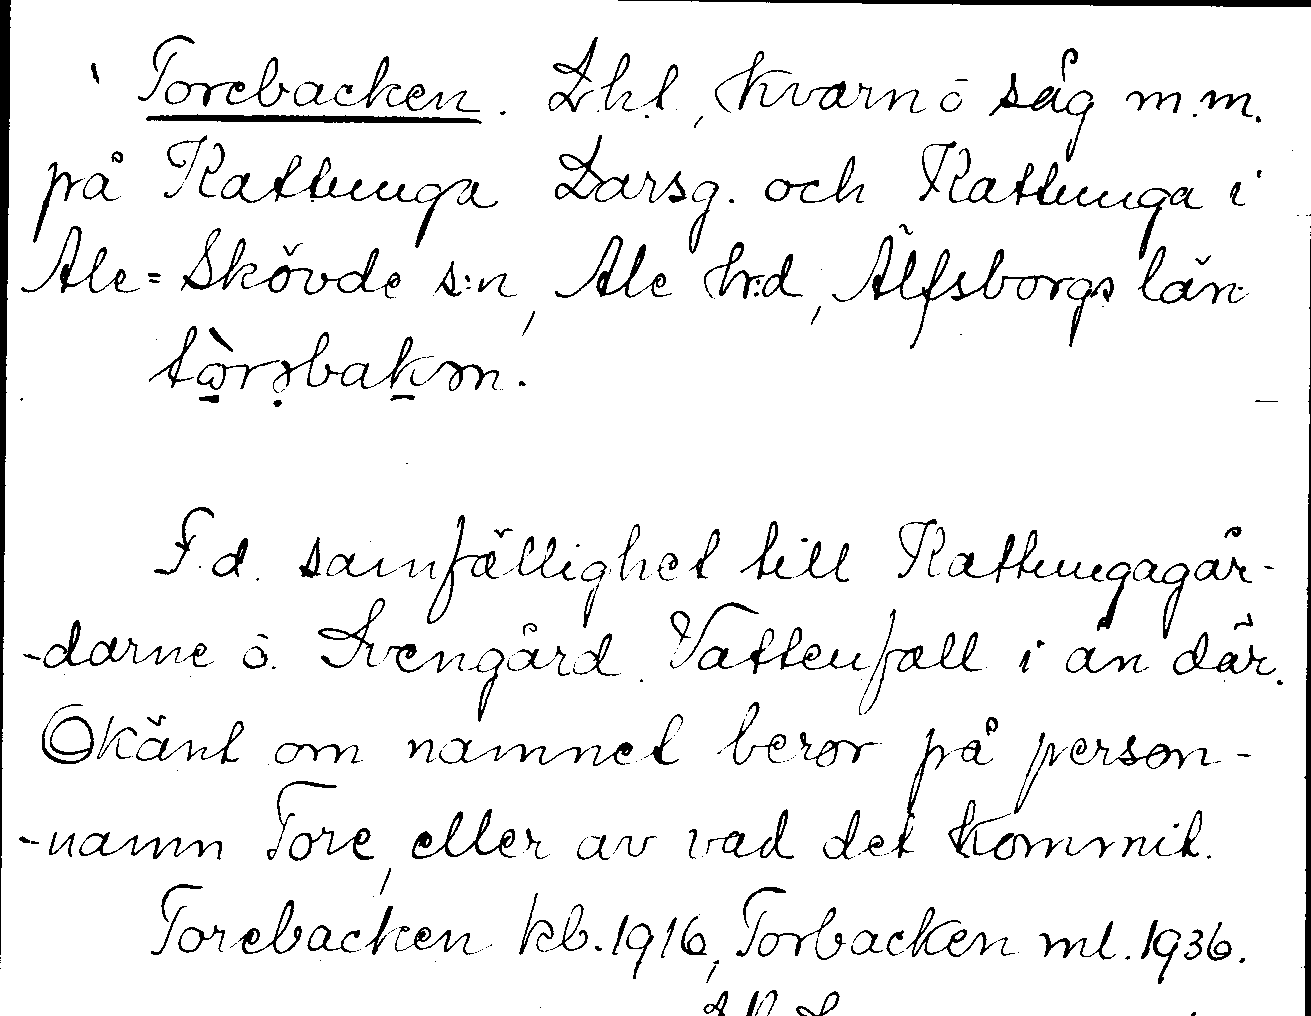 Torebacken. Lht, kvarn o såg m.m.
på Rattunga Larsg. och Rattunga i
Ale=Skövde s:n, Ale h:d, Älfsborgs län
F.d. samfällighet till Rattungagår-
-darne o. Svengård. Vattenfall i ån där.
Okänt om namnet beror på person-
-namn Tore, eller av vad det kommit.
Torebacken kb. 1916, Torbacken ml. 1936.